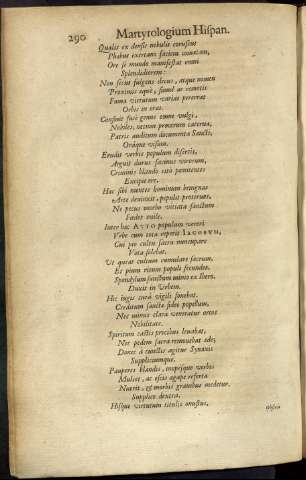 290 Martyrologium Hispan.
Qualis ex densis nebulis coruscus
Phœbus exertam faciem iouatam,
Ore si mundo manifestas omni
Splendidiorem:
Non secus fulgens decus, atque numen
Proximos æquè, simul ac remotis
Fama virtutum varias pererrat
Orbis in oras.
Confluit fusi genus omne vulgi,
Nobiles, necnon procerum caterua,
Patris auditum documenta Sancti,
Oráque visum.
Erudit verbis populum disertis,
Arguit duros facinus virorum,
Criminis blando citò pœnitentes
Excipit ore.
Hac sibi mentes hominum benignas
Arte deuincit, populis proteruis,
Ne pecus morbo vitiata sanctum
Fœdet ouile.
Inter hæc AVTO populum moueri
Vrbe cum tota reperit IACOBVM,
Cui pio cultu sacra nuncupare
Vota solebat.
Vt queat cultum cumulare sacrum,
Et pium ritum populi secundet,
Spondylum sanctum minus ex Ibera
Duxit in Vrbem.
Hic iugis curâ vigili fouebat
Creditum sanctæ fidei popellum,
Nec minus clara veneratur ortos
Nobilitate.
Spiritum castis precibus leuabat,
Nec pedem sacra remouebat æde,
Donec à cunctis agitur Synaxis
Supplicúmque.
Pauperes blandis, inopésque verbis
Mulcet, ac escis agape referta
Nutrit, & morbis grauibus medetur,
Supplice dextra.
Hisque virtutum titulis onustus,